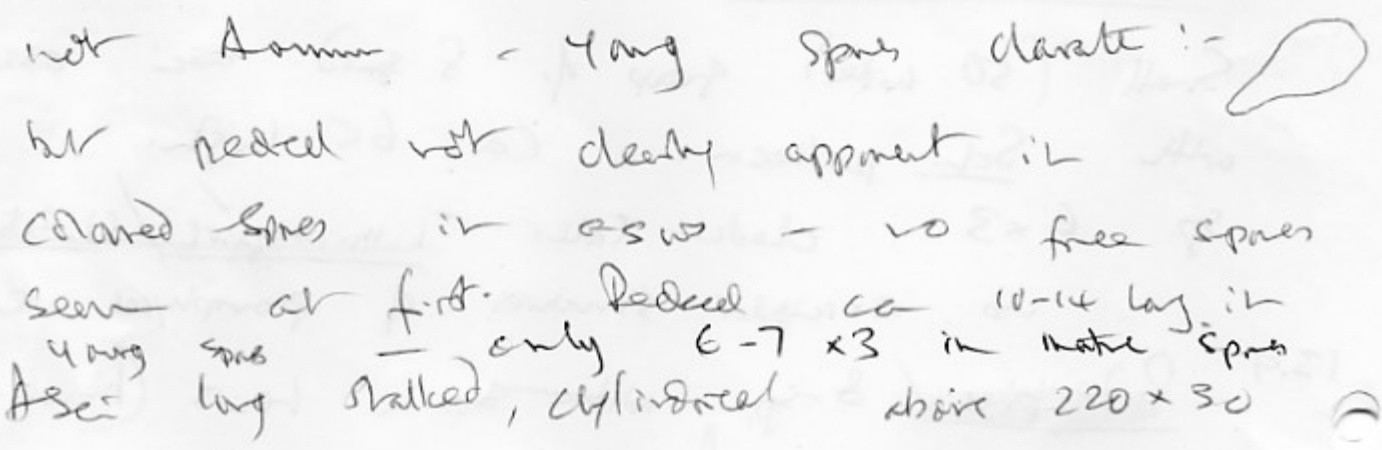 not - young spores clavate :-
but pedicel not clearly apparent in
coloured spores in ascus - no free spores
seen at first. Pedicel ca 10-14 long in
young spores - only 6-7 x3 in mature spores
Asci long stalked, cylindrical above 220 x 30